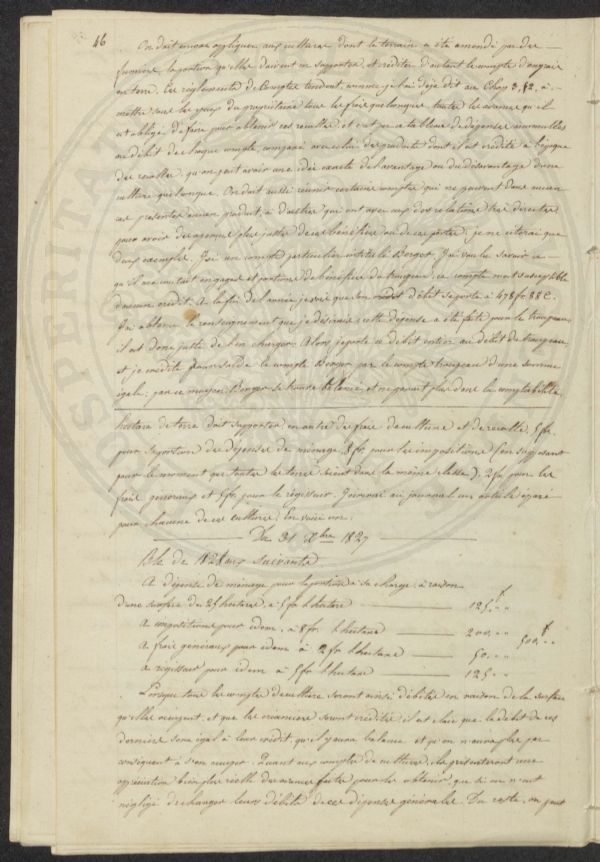 46
On doit encore appliquer aux cultures dont le terrain a été amendé par des
fumiers, la portion qu'elles doivent en supporter, et créditer d'autant le compte d'engrais
en terre. Ces règlements de Comptes tendent, comme je l'ai déjà dit au Chap. 3, §2, à
mettre sous les yeux du propriétaire tous les frais quelconques, toutes les avances qu'il
est obligé de faire pour obtenir ses récoltes, et c'est par ce tableau de dépenses annuelles
au débit de chaque compte, comparé avec celui des produits dont il est crédité à l'époque
des récoltes, qu'on peut avoir une idée exacte de l'avantage ou du désavantage d'une
culture quelconque. On doit aussi réunir certains comptes qui ne peuvent dans aucun
cas présenter aucun produit, à d'autres qui ont avec eux des relations très directes
pour avoir des aperçus plus justes de ces bénéfices ou de ces pertes; je ne citerai que
deux exemples. J'ai un compte particulier intitulé Berger. J'ai voulu savoir ce
qu'il me coûtait en gages et portions de bénéfice du troupeau; ce compte n'est susceptible
d'aucun crédit. À la fin de l'année je vois que son débit se porte à 478 fr. 88 c.
J'ai obtenu le renseignement que je désirais; cette dépense a été faite pour le troupeau,
il est donc juste de l'en charger. Alors je porte ce débit entier au débit de troupeau,
et je crédite pour solde le compte Berger par le compte troupeau d'une somme
égale; par ce moyen Berger se trouve balancé et ne paraît plus dans la comptabilité.
hectare de terre doit supporter, en outre des frais de culture et de récolte, 5 fr.
pour sa portion des dépenses de ménage, 8 fr. pour les impositions (en supposant
pour le moment que toutes les terres soient dans la même classe), 2 fr. pour les
frais généraux et 5 fr. pour le régisseur. J'ouvrirai au journal un article séparé
pour chacune de ces cultures. En voici un.
Du 31 Xbre 1827
Blé de 1828 aux Suivants
A dépense de ménage pour la portion à sa charge, à raison
d'une surface de 25 hectares, à 5 fr. l'hectare 125 f " "
A impositions pour idem, à 8 fr. l'hectare 200 " "
A frais généraux pour idem à 2 fr. l'hectare 50 " " 500 f " "
A régisseur pour idem à 5 fr. l'hectare 125 " "
Lorsque tous les comptes de culture seront ainsi débités en raison de la surface
qu'elles occupent, et que les créanciers seront crédités, il est clair que le débit de ces
derniers sera égal à leur crédit, qu'il y aura balance et qu'on n'aura plus par
conséquent à s'en occuper. Quant aux comptes de culture, ils présenteront une
appréciation bien plus réelle des avances faites pour les obtenir, que si on n'eut
négligé de charger leurs débits de ces dépenses générales. Du reste, on peut